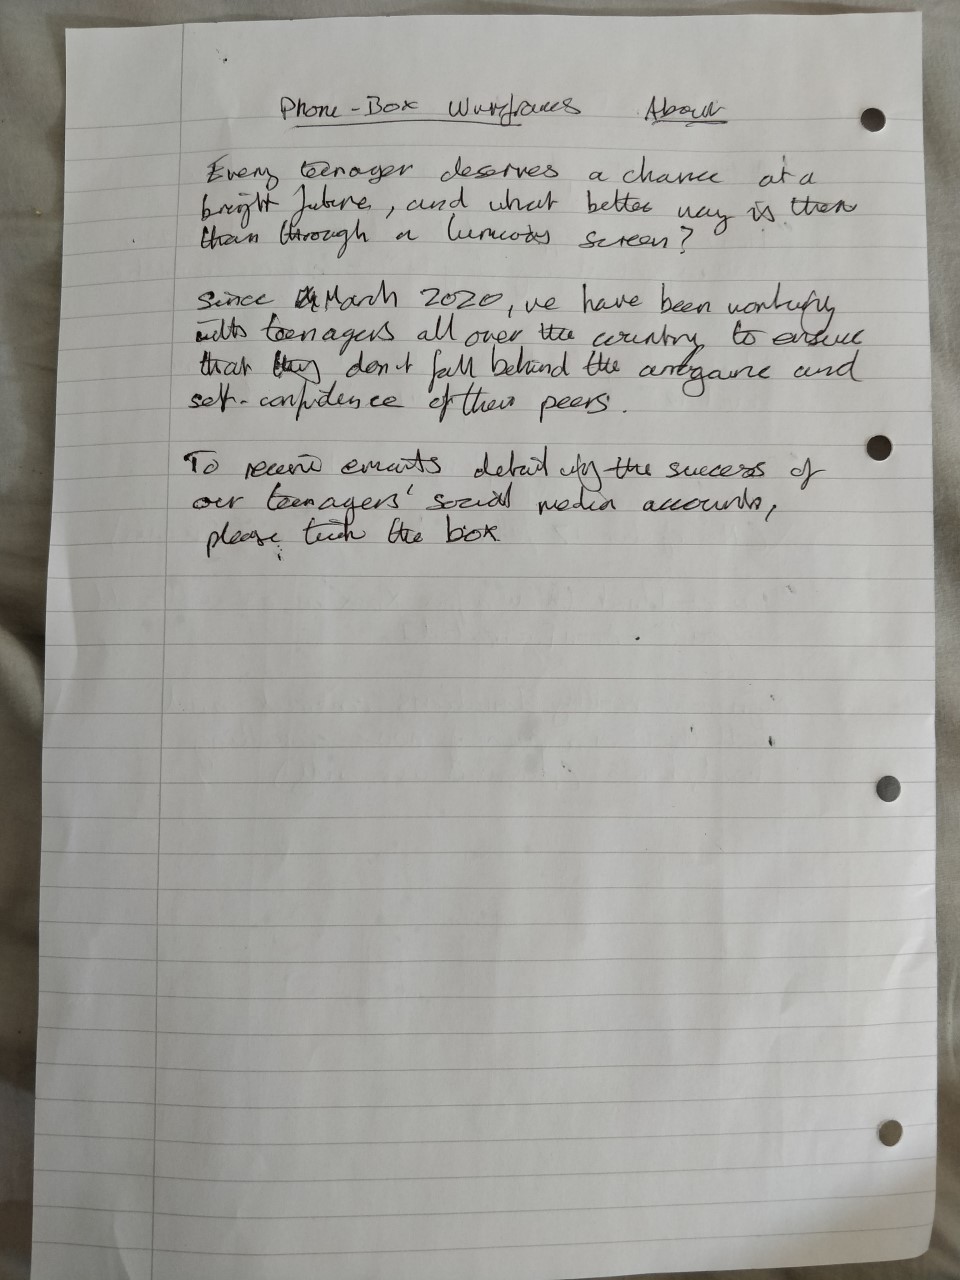 Phone-Box Wireframes About
Every teenager deserves a chance at a
bright future, and what better way is there
than through a luminous screen?
Since March 2020, we have been working
with teenagers all over the country to ensure
that they don't fall behind the and
self-confidence of their peers.
To receive emails detailing the success of
our teenagers' social media accounts,
please tick the box